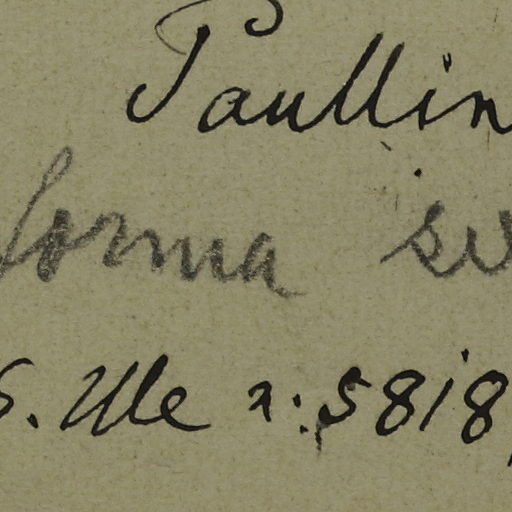 Paullin
forma se
S. Ule n: 5818